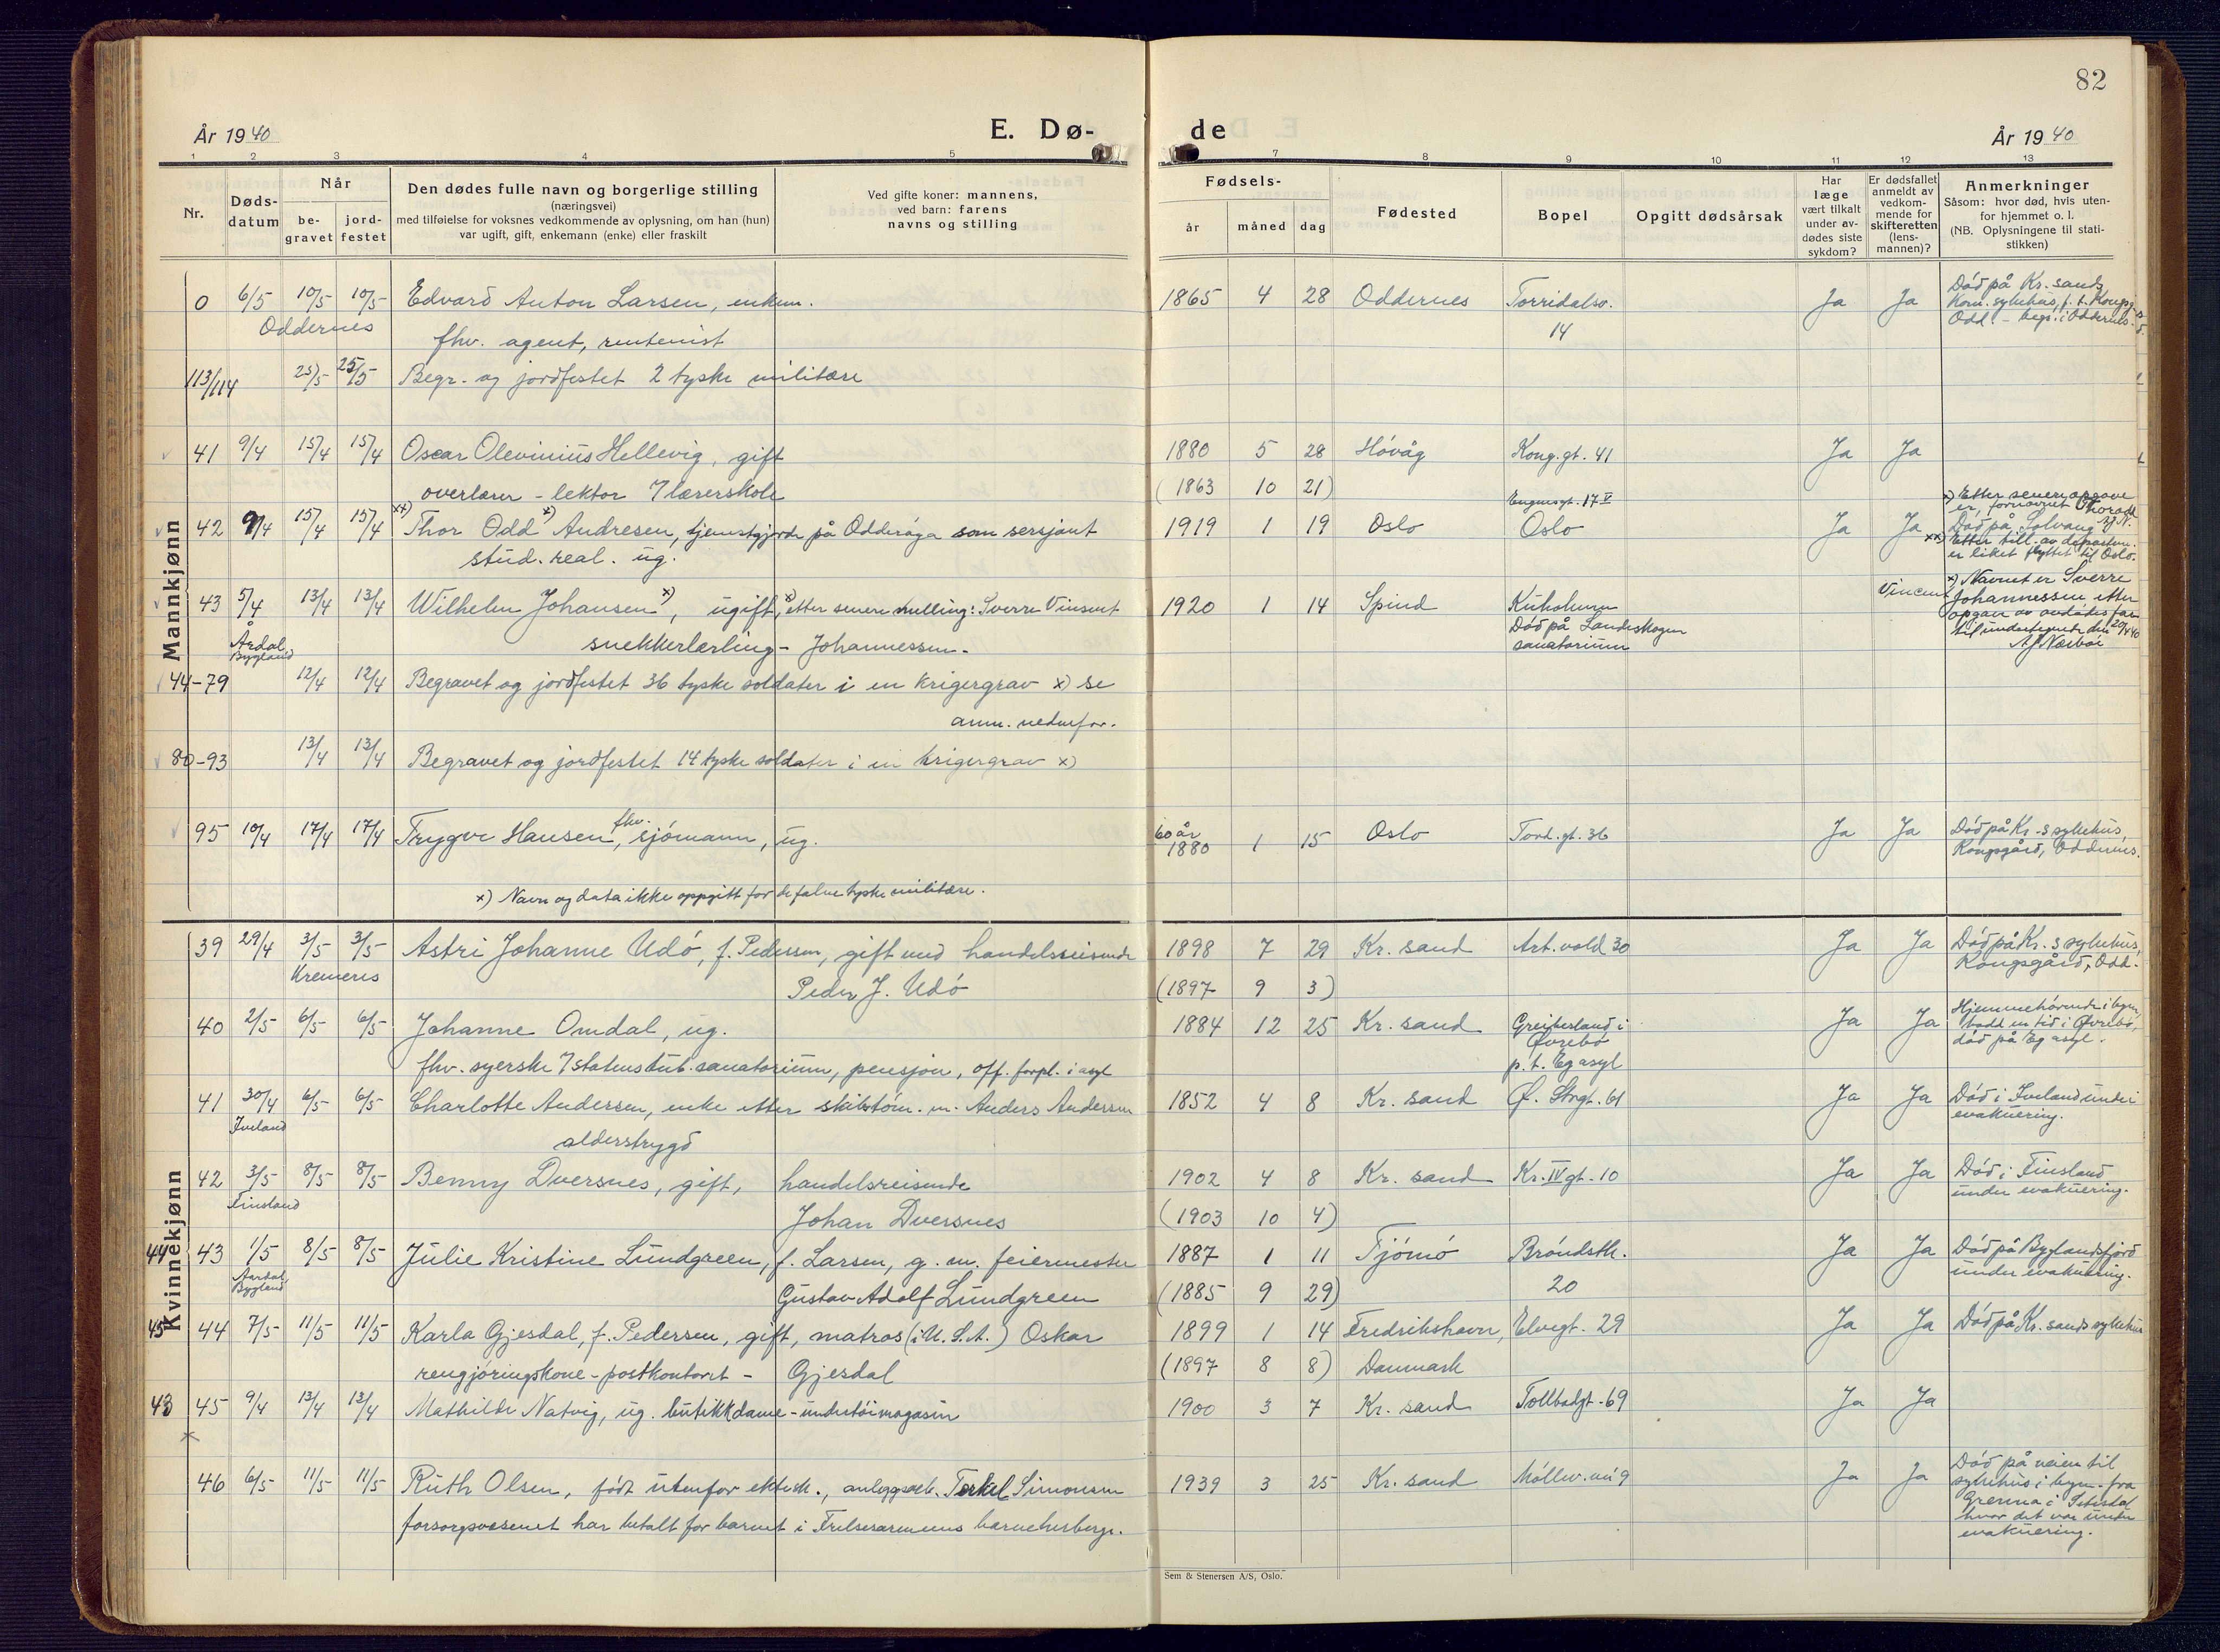 82
År 1940
E. Dø-
de
År 1940
1 2 3 4 5 7 8 9 10 11 12 13
Nr.
Døds-
datum
Når
be-
gravet
jord-
festet
Den dødes fulle navn og borgerlige stilling
(næringsvei)
med tilføielse for voksnes vedkommende av oplysning, om han (hun)
var ugift, gift, enkemann (enke) eller fraskilt
Ved gifte koner: mannens,
ved barn: farens
navns og stilling
Fødsels-
år måned dag
Fødested
Bopel
Opgitt dødsårsak
Har
læge
vært tilkalt
under av-
dødes siste
sykdom?
Er dødsfallet
anmeldt av
vedkom-
mende for
skifteretten
(lens-
mannen)?
Anmerkninger
Såsom: hvor død, hvis uten-
for hjemmet o. l.
(NB. Oplysningene til stati-
stikken)
Mannkjønn
0 6/5 10/5 10/5 Edvard Anton Larsen, enkem. 1865 4 28 Oddernes Torridalsv. Ja Ja Død på Kr. sands
Oddernes fhv. agent, rentenist 14 Kom. sykehus, p. t. Kongsg.
Odd. - begr. i Oddernes.
113/114 25/5 25/5 Begr. og jordfestet 2 tyske militære
41 9/4 15/4 15/4 Oscar Olevinius Hellevig, gift 1880 5 28 Høvåg Kong. gt. 41 Ja Ja
overlærer - lektor / lærerskole (1863 10 21)
42 9/4 15/4 15/4 xx) Thor Odd x) Andresen, tjenestgjorde på Odderøya som sersjant 1919 1 19 Oslo Oslo Ja Ja
stud. real. ug.
x) Etter senere opgave
er fornavnet Thorodd
Død på Solvang
xx) Etter till. av departem.
er liket flyttet til Oslo.
43 5/4 13/4 13/4 Wilhelm Johansen x), ugift, x) etter senere melling: Sverre Vinsent 1920 1 14 Spind Kuholmen
Årdal Bygland snekkerlærling - Johannessen - Død på Landeskogen
sanatorium
Vincent
x) Navnet er Sverre
Johannessen etter
opgave av avdødes far
til undertegnede den 20/4 40
44-79 12/4 12/4 Begravet og jordfestet 36 tyske soldater i en krigergrav x) se
anm. nedenfor.
80-93 13/4 13/4 Begravet og jordfestet 14 tyske soldater i en krigergrav x)
95 10/4 17/4 17/4 Trygve Hansen, fhv. sjømann, ug. 60 år 1880 1 15 Oslo Tord. gt. 36 Ja Ja Død på Kr.-s sykehus,
Kongsgård, Oddernes.
x) Navn og data ikke oppgitt for de falne tyske militære.
Kvinnekjønn
39 29/4 3/5 3/5 Astri Johanne Udø, f. Pedersen, gift med handelsreisende 1898 7 29 Kr. sand Art. vold 30 Ja Ja Død på Kr. s sykehus,
Kremeres Peder J. Udø (1897 9 3) Kongsgård, Odd.
40 2/5 6/5 6/5 Johanne Omdal, ug. 1884 12 25 Kr. sand Greiberland i Ja Ja Hjemmehørende i byen,
Øvrebø bodd en tid i Øvrebø,
fhv. syerske / statens tub. sanatorium, pensjon, off. forpl. i asyl p. t. Eg asyl død på Eg asyl.
41 30/4 6/5 6/5 Charlotte Andersen, enke etter skibstøm. m. Anders Andersen 1852 4 8 Kr. sand Ø. Strgt. 61 Ja Ja Død i Iveland under
Iveland alderstrygd evakuering.
42 3/5 8/5 8/5 Benny Dversnes, gift, handelsreisende 1902 4 8 Kr. sand Kr. IV gt. 10 Ja Ja Død i Finsland
Finsland Johan Dversnes (1903 10 4) under evakuering.
44 43 1/5 8/5 8/5 Julie Kristine Lundgreen, f. Larsen, g. m. feiermester 1887 1 11 Tjømø Brøndstk. Ja Ja Død på Byglandsfjord
Aardal Bygland Gustav Adolf Lundgreen (1885 9 29) 20 under evakuering.
45 44 7/5 11/5 11/5 Karla Gjesdal, f. Pedersen, gift, matros (i U. S. A.) Oskar 1899 1 14 Fredrikshavn, Elvegt. 29 Ja Ja Død på Kr. sands sykehus
rengjøringskone - postkontoret - Gjesdal (1897 8 8) Danmark
43 45 9/4 13/4 13/4 Mathilde Natvig, ug. butikkdame - undertøimagasin 1900 3 7 Kr. sand Tollbodgt. 69 Ja Ja
46 6/5 11/5 11/5 Ruth Olsen, født utenfor ektesk., anleggsarb. Terkel Simonsen 1939 3 25 Kr. sand Møllev. 9 Ja Ja Død på veien til
forsorgsvesenet har betalt for barnet i Frelsesarmeens barneherberge.
sykehus i byen fra
Grenna i Setesdal
hvor det var under
evakuering.
Sem & Stenersen A/S, Oslo.